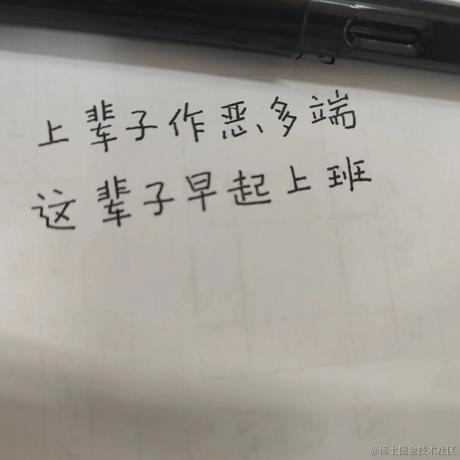 上辈子作恶多端
这辈子早起上班
@稀土掘金技术社区